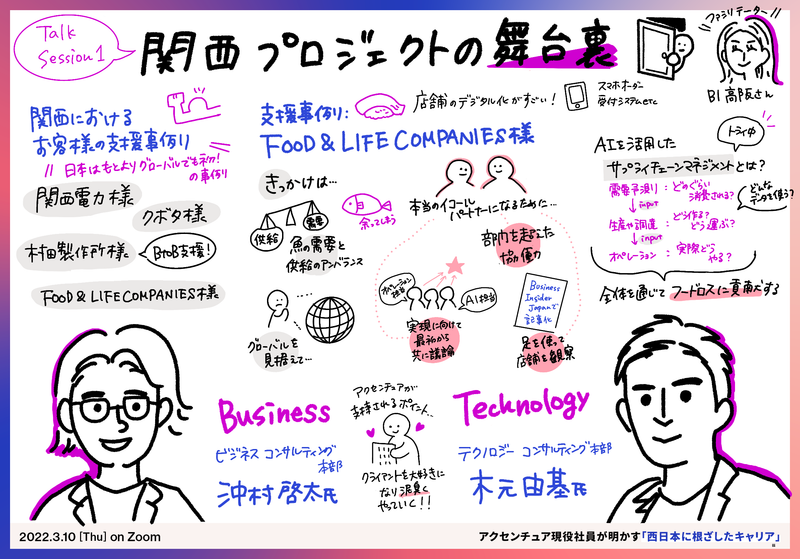 Talk
Session1
関西プロジェクトの舞台裏
ファシリテーター
BI 高阪さん
関西における
お客様の支援事例
日本はもとよりグローバルでもネタ!
の事例
関西電力様
クボタ様
村田製作所様
BtoB支援!
FOOD & LIFE COMPANIES様
支援事例:
店舗のデジタル化がすごい!
スマホオーダー
受付システムetc
FOOD & LIFE COMPANIES様
きっかけは…
供給
需要
魚の需要と
供給のアンバランス
余ってしまう
グローバルを
見据えて…
本当のイコール
パートナーになるために…
部門を超えた
協働力
オペレーション
担当
AI担当
実現に向けて
最初から
共に議論
Business
Insider
Japanで
記事化
足を使って
店舗を観察
トライ中
AIを活用した
サプライチェーンマネジメントとは?
需要予測：どのぐらい
消費される?
どんな
データを使う?
↓input
生産や調達：どう作る?
どう運ぶ?
↓input
オペレーション：実際どう
やる?
全体を通じてフードロスに貢献する
Business
ビジネス コンサルティング
本部
沖村啓太氏
アクセンチュアが
支持されるポイント…
クライアントを大好きに
なり泥臭く
やっていく!!
Tecknology
テクノロジー コンサルティング本部
木元由基氏
2022.3.10 [Thu] on Zoom
アクセンチュア現役社員が明かす「西日本に根ざしたキャリア」